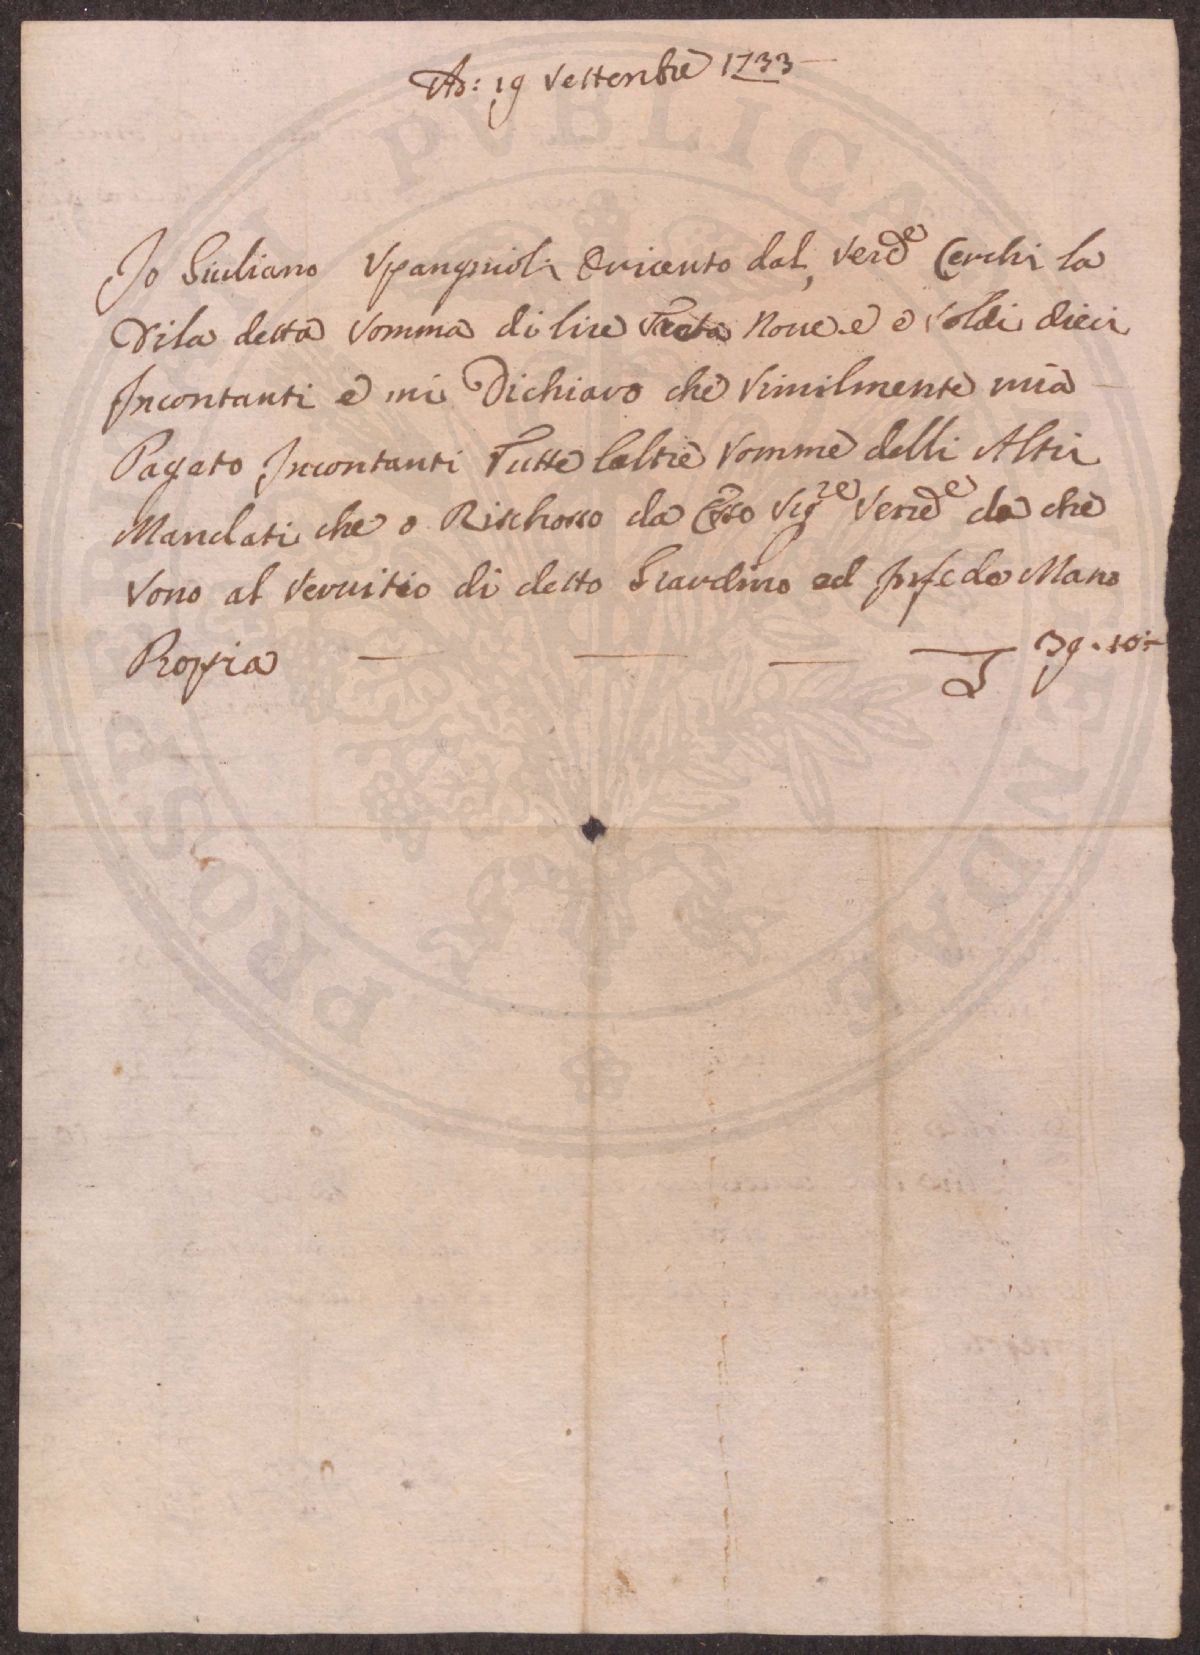 Ad: 19 Settenbre 1733
Io Giuliano Spangnioli O riceuto dal Serdo Cerchi la
Dila detta Somma di lire Treta Noue e e Soldi dieci
Incontanti e mi Dichiaro che Similmente mia
Pagato Incontanti Tutte laltre Somme delli Altri
Mandati che o Rischosso da Esso Sigre Serde da che
Sono al Seruitio di detto Giardino ed In fede Mano
Propia 39.10:-
PROSPERITATI PVBLICAE AVGENDAE